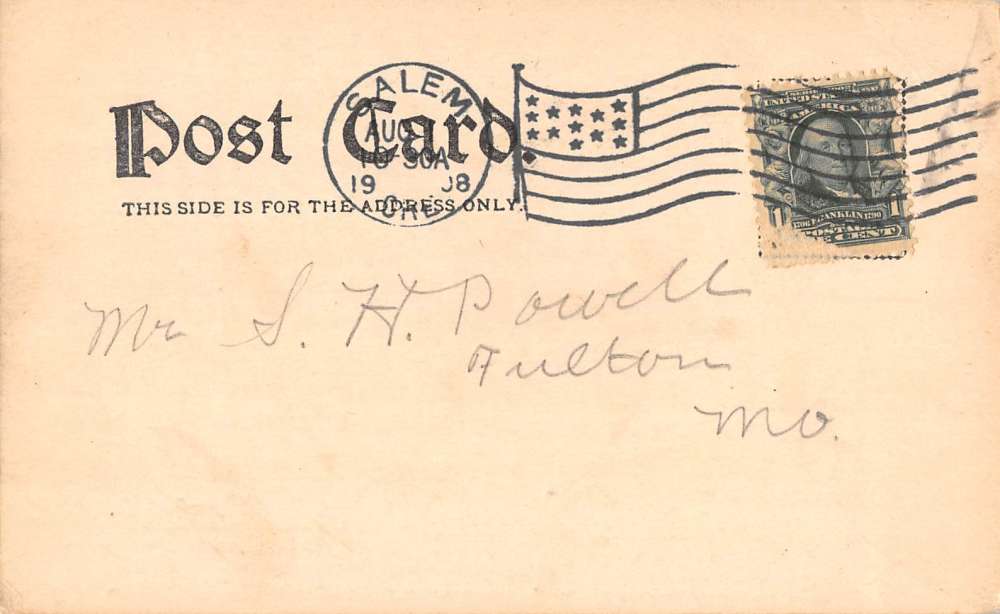 Post Card.
THIS SIDE IS FOR THE ADDRESS ONLY.
SALEM
AUG
10-30A
19 08
ORE
UNITED STATES
AMERICA
1 FRANKLIN 1790 1
POSTAGE
CENT
Mr S. H. Powell
Fulton
Mo.